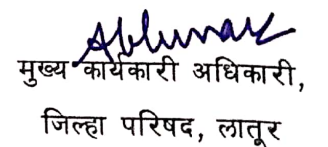 मुख्य कार्यकारी अधिकारी,
जिल्हा परिषद, लातूर